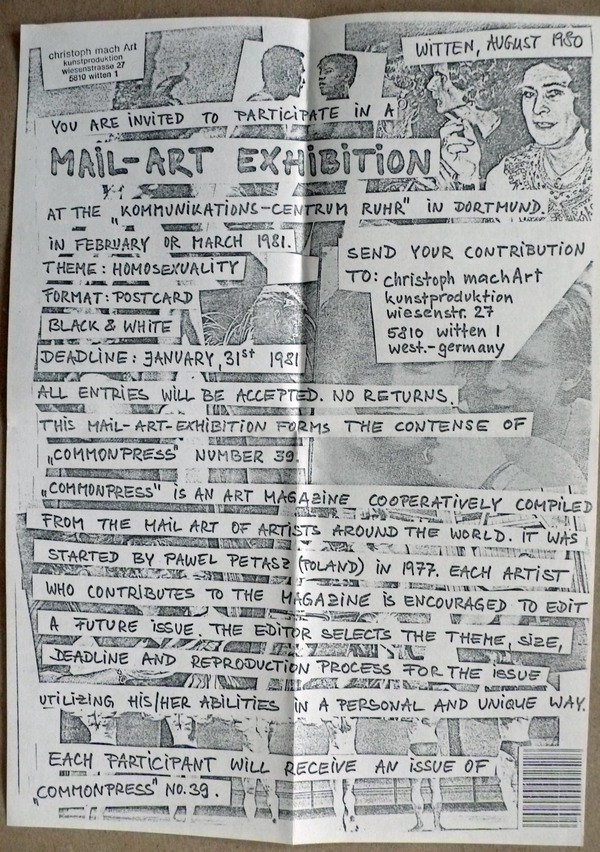 christoph mach Art
kunstproduktion
wiesenstrasse 27
5810 witten 1
WITTEN, AUGUST 1980
YOU ARE INVITED TO PARTICIPATE IN A
MAIL-ART EXHIBITION
AT THE „KOMMUNIKATIONS-CENTRUM RUHR" IN DORTMUND.
IN FEBRUARY OR MARCH 1981.
THEME: HOMOSEXUALITY
FORMAT: POSTCARD
BLACK & WHITE
DEADLINE: JANUARY, 31st 1981
SEND YOUR CONTRIBUTION
TO: christoph machArt
kunstproduktion
wiesenstr. 27
5810 witten 1
west.-germany
ALL ENTRIES WILL BE ACCEPTED. NO RETURNS.
THIS MAIL-ART-EXHIBITION FORMS THE CONTENSE OF
„COMMONPRESS" NUMBER 39.
„COMMONPRESS" IS AN ART MAGAZINE COOPERATIVELY COMPILED
FROM THE MAIL ART OF ARTISTS AROUND THE WORLD. IT WAS
STARTED BY PAWEL PETASZ (POLAND) IN 1977. EACH ARTIST
WHO CONTRIBUTES TO THE MAGAZINE IS ENCOURAGED TO EDIT
A FUTURE ISSUE. THE EDITOR SELECTS THE THEME, SIZE,
DEADLINE AND REPRODUCTION PROCESS FOR THE ISSUE
UTILIZING HIS/HER ABILITIES IN A PERSONAL AND UNIQUE WAY.
EACH PARTICIPANT WILL RECEIVE AN ISSUE OF
„COMMONPRESS" NO.39.